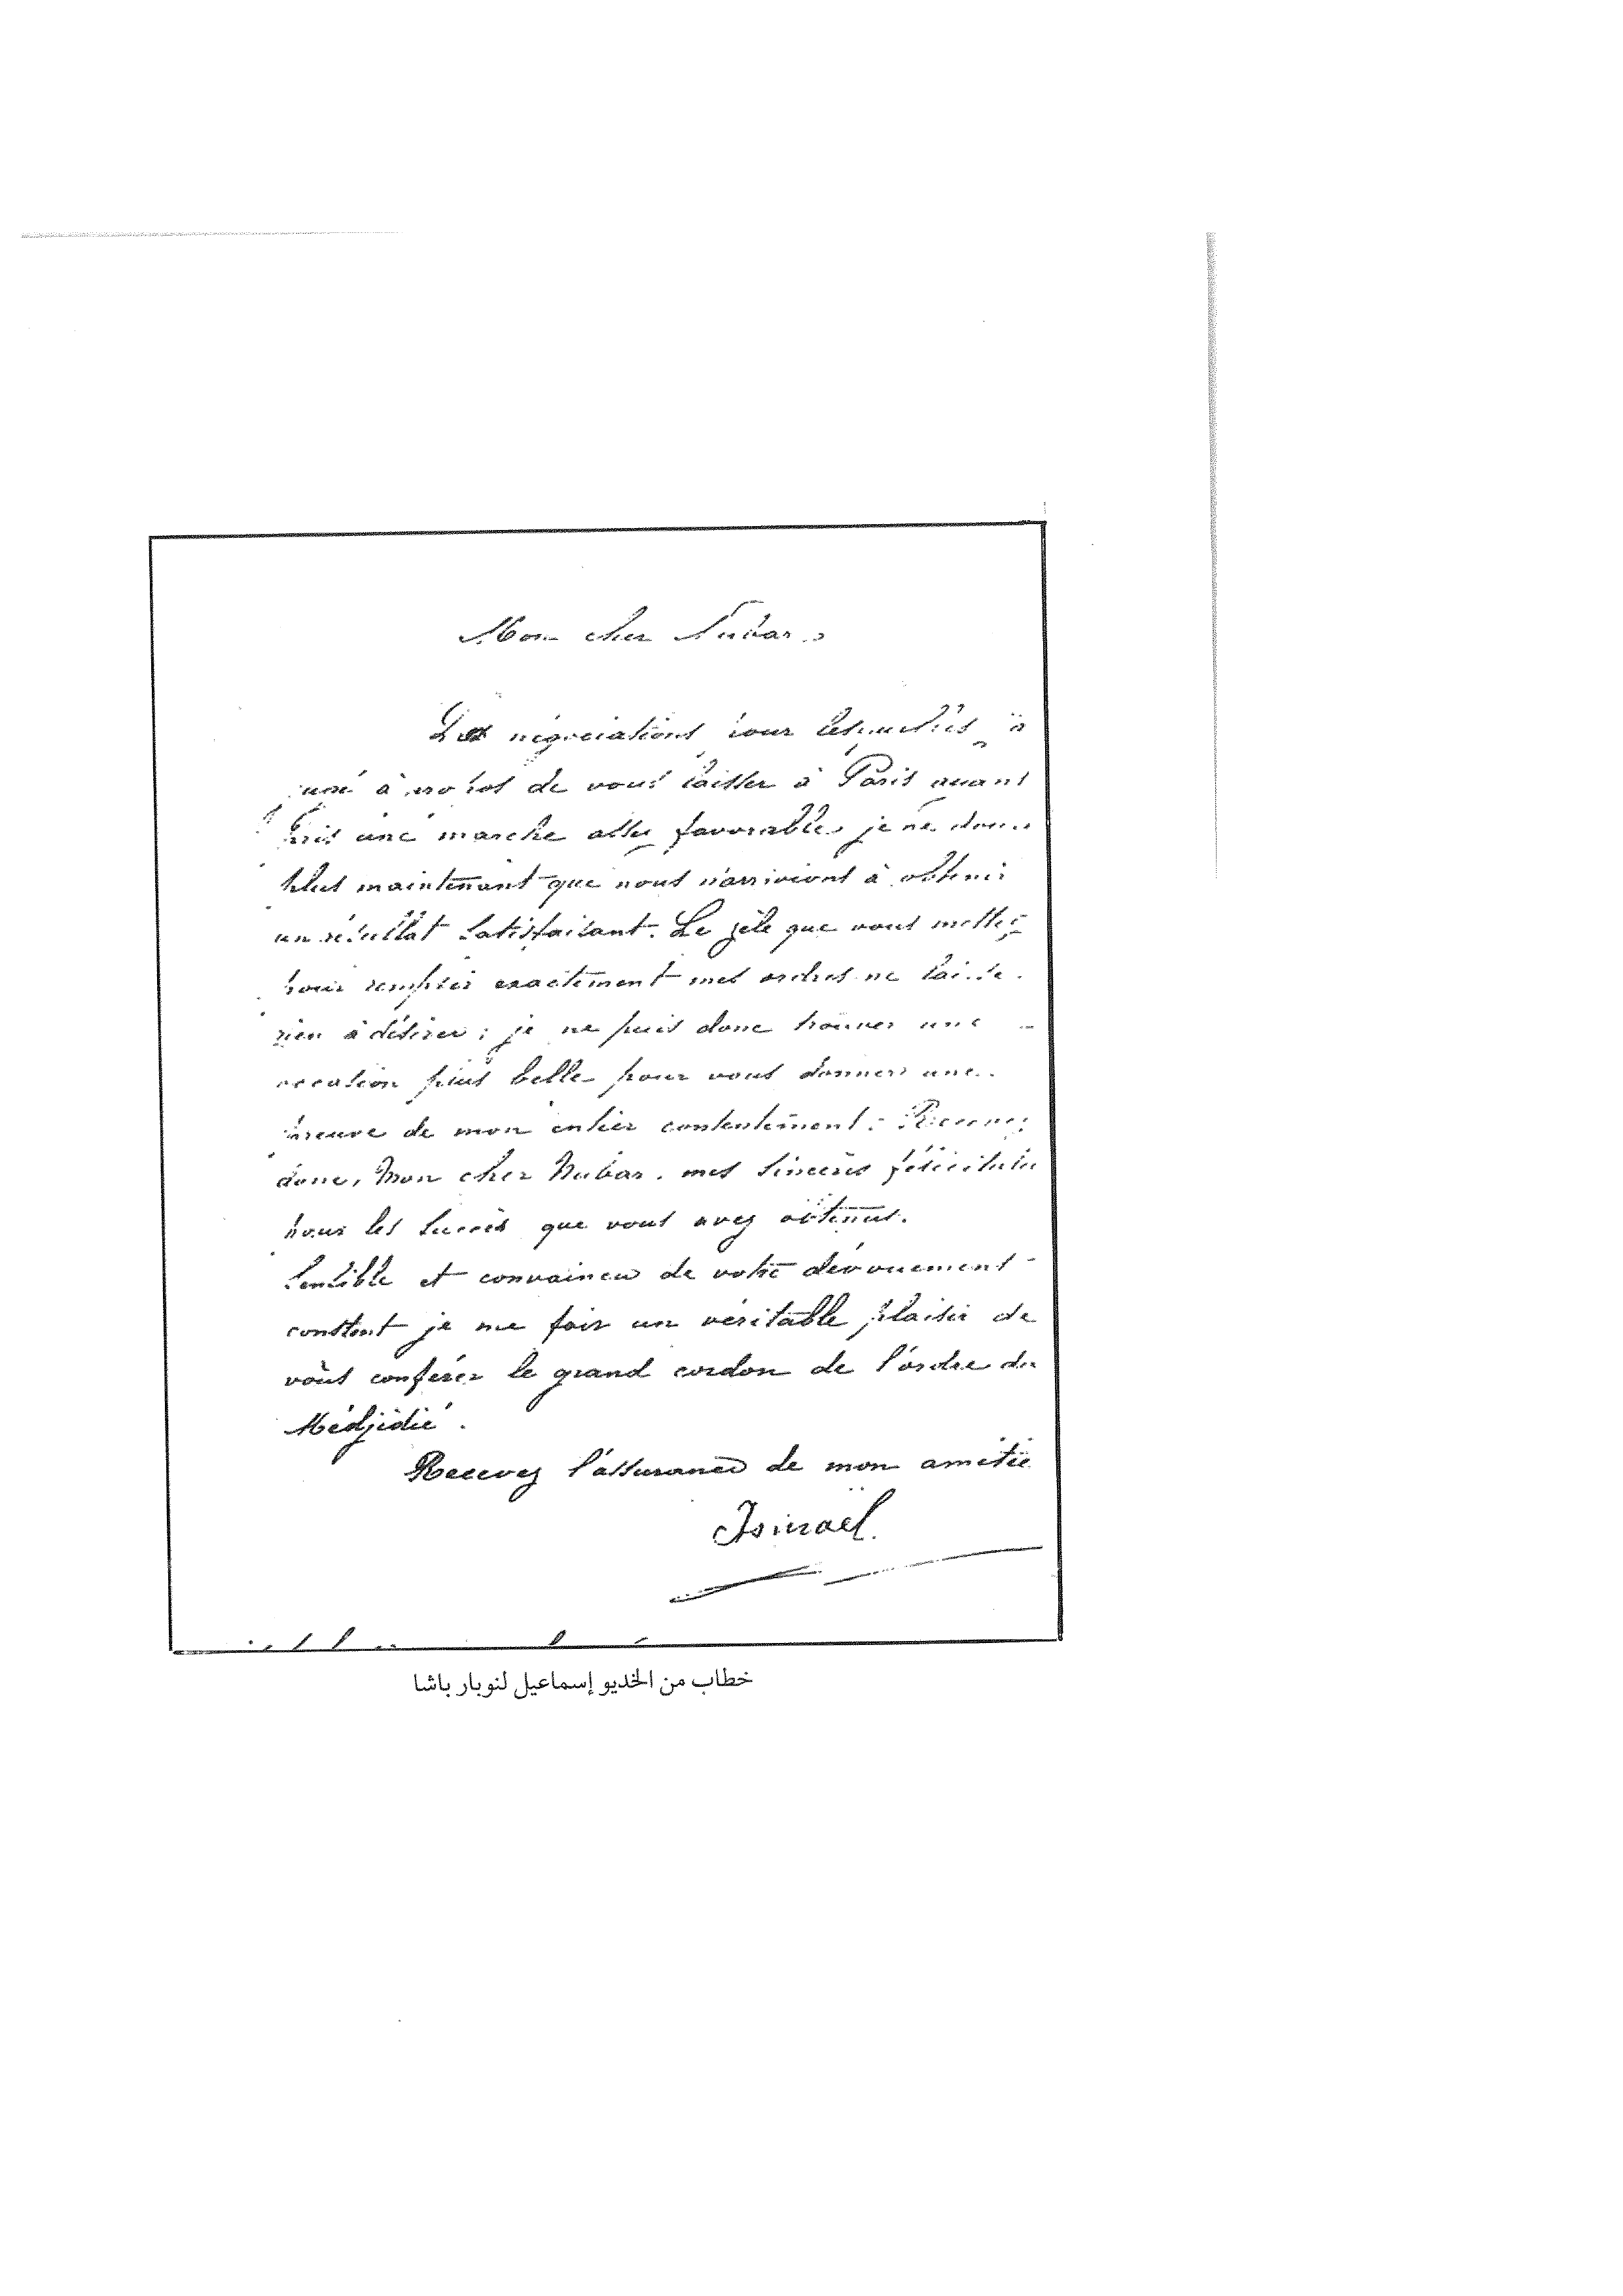 Mon cher Nubar,
Les négociations pour lesquelles j'ai
jugé à propos de vous laisser à Paris ayant
pris une marche assez favorable, je ne doute
plus maintenant que nous n'arrivions à obtenir
un résultat satisfaisant. Le zèle que vous mettez
pour remplir exactement mes ordres ne laisse
rien à désirer ; je ne puis donc trouver une
occasion plus belle pour vous donner une
preuve de mon entier contentement. Recevez
donc, Mon cher Nubar, mes sincères félicitations
pour les succès que vous avez obtenus.
Sensible et convaincu de votre dévouement
constant je me fais un véritable plaisir de
vous conférer le grand cordon de l'ordre du
Medjidié.
Recevez l'assurance de mon amitié
Ismaël.
خطاب من الخديو إسماعيل لنوبار باشا